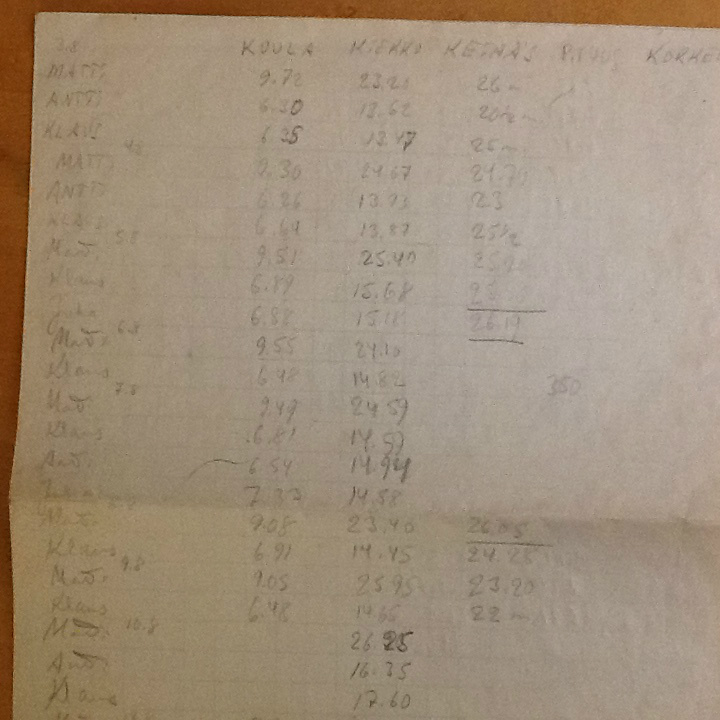 3.8 KUULA KIEKKO KEIHÄS PITUUS
MATTI 9.72 23.20 26 m
ANTTI 6.30 13.62
KLAUS 6.35 13.47 25 m
4.8
MATTI 9.30 24.67 24.70
ANTTI 6.26 13.73 23
KLAUS 6.64 13.87 25½
5.8
Matti 9.51 25.40
Klaus 6.89 15.68 25
Juha 6.88 15.18 26.19
6.8
Matti 9.55 24.10
Klaus 6.48 14.82 350
7.8
Matti 9.49 24.59
Klaus 6.81 14.59
Antti 6.54 14.94
7.37 14.58
Matti 9.08 23.40 26.05
Klaus 6.91 14.45 24.25
9.8
Matti 9.05 25.95 23.20
Klaus 6.48 14.65 22 m
10.8
Matti 26.25
Antti 16.35
Klaus 17.60